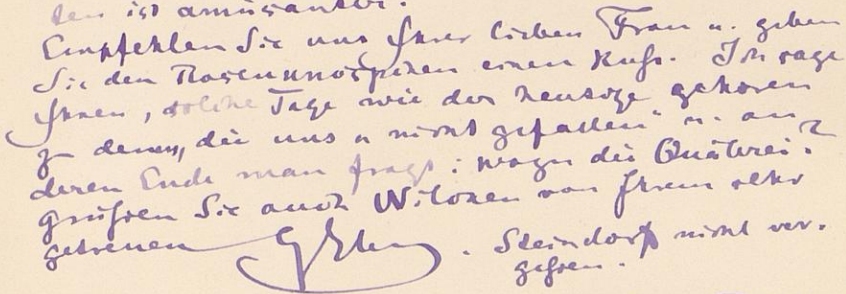 den ist amüsanter.
Empfehlen Sie uns Ihrer lieben Frau u. geben
Sie den Rosenknospchen einen Kuß. Ich sage
Ihnen, solche Tage wie der heutige gehören
zu denen, die uns „nicht gefallen“ u. an
deren Ende man fragt: wozu die Quälerei?
Grüßen Sie auch Wilcken von Ihrem sehr
getreuen GEbers. Steindorff nicht ver-
gessen.